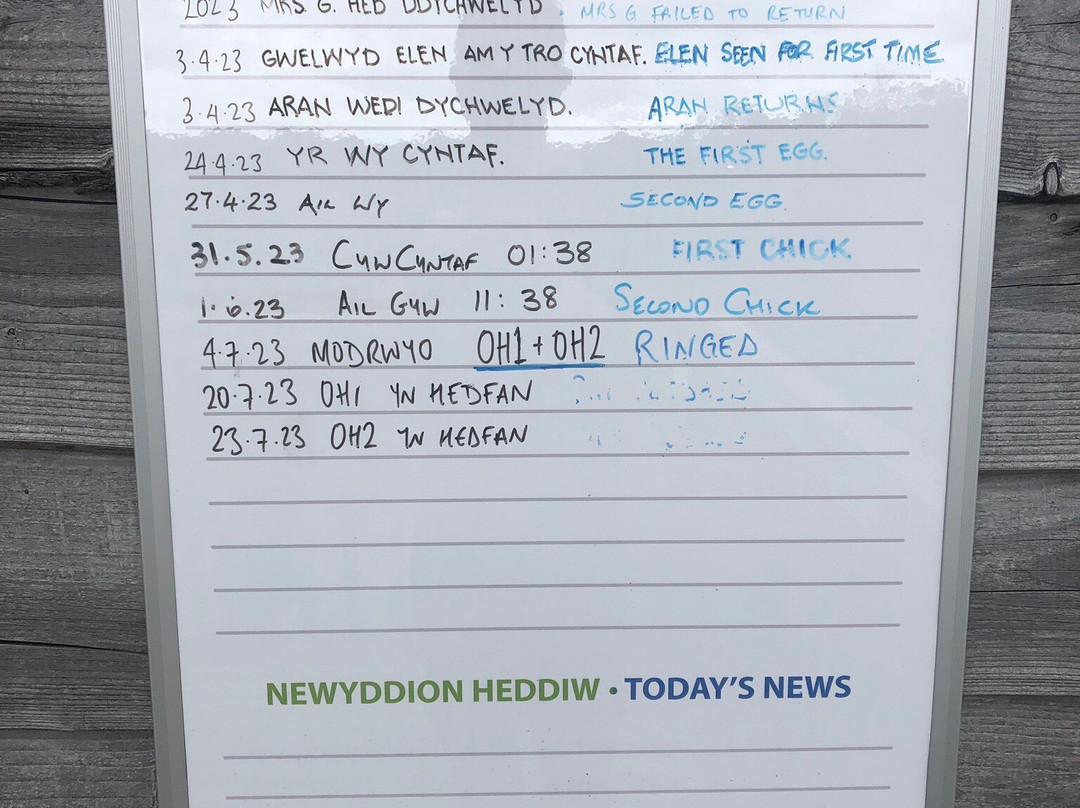 2023 MRS. G. HEB DDYCHWELYD. MRS G FAILED TO RETURN
3.4.23 GWELWYD ELEN AM Y TRO CYNTAF. ELEN SEEN FOR FIRST TIME
3.4.23 ARAN WEDI DYCHWELYD. ARAN RETURNS
24.4.23 YR WY CYNTAF. THE FIRST EGG.
27.4.23 AIL WY SECOND EGG.
31.5.23 CYW CYNTAF 01:38 FIRST CHICK
1.6.23 AIL GYW 11:38 SECOND CHICK
4.7.23 MODRWYO OH1 + OH2 RINGED
20.7.23 OH1 YN HEDFAN
23.7.23 OH2 YN HEDFAN
NEWYDDION HEDDIW • TODAY'S NEWS